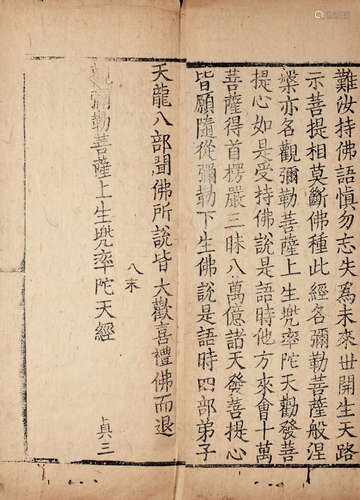 難汝持佛語慎勿忘失為未來世開生天路
示菩提相莫斷佛種此經名彌勒菩薩般涅
槃亦名觀彌勒菩薩上生兜率陀天勸發菩
提心如是受持佛說是語時他方來會十萬
菩薩得首楞嚴三昧八萬億諸天發菩提心
皆願隨從彌勒下生佛說是語時四部弟子
天龍八部聞佛所說皆大歡喜禮佛而退
八末
觀彌勒菩薩上生兜率陀天經
貞三